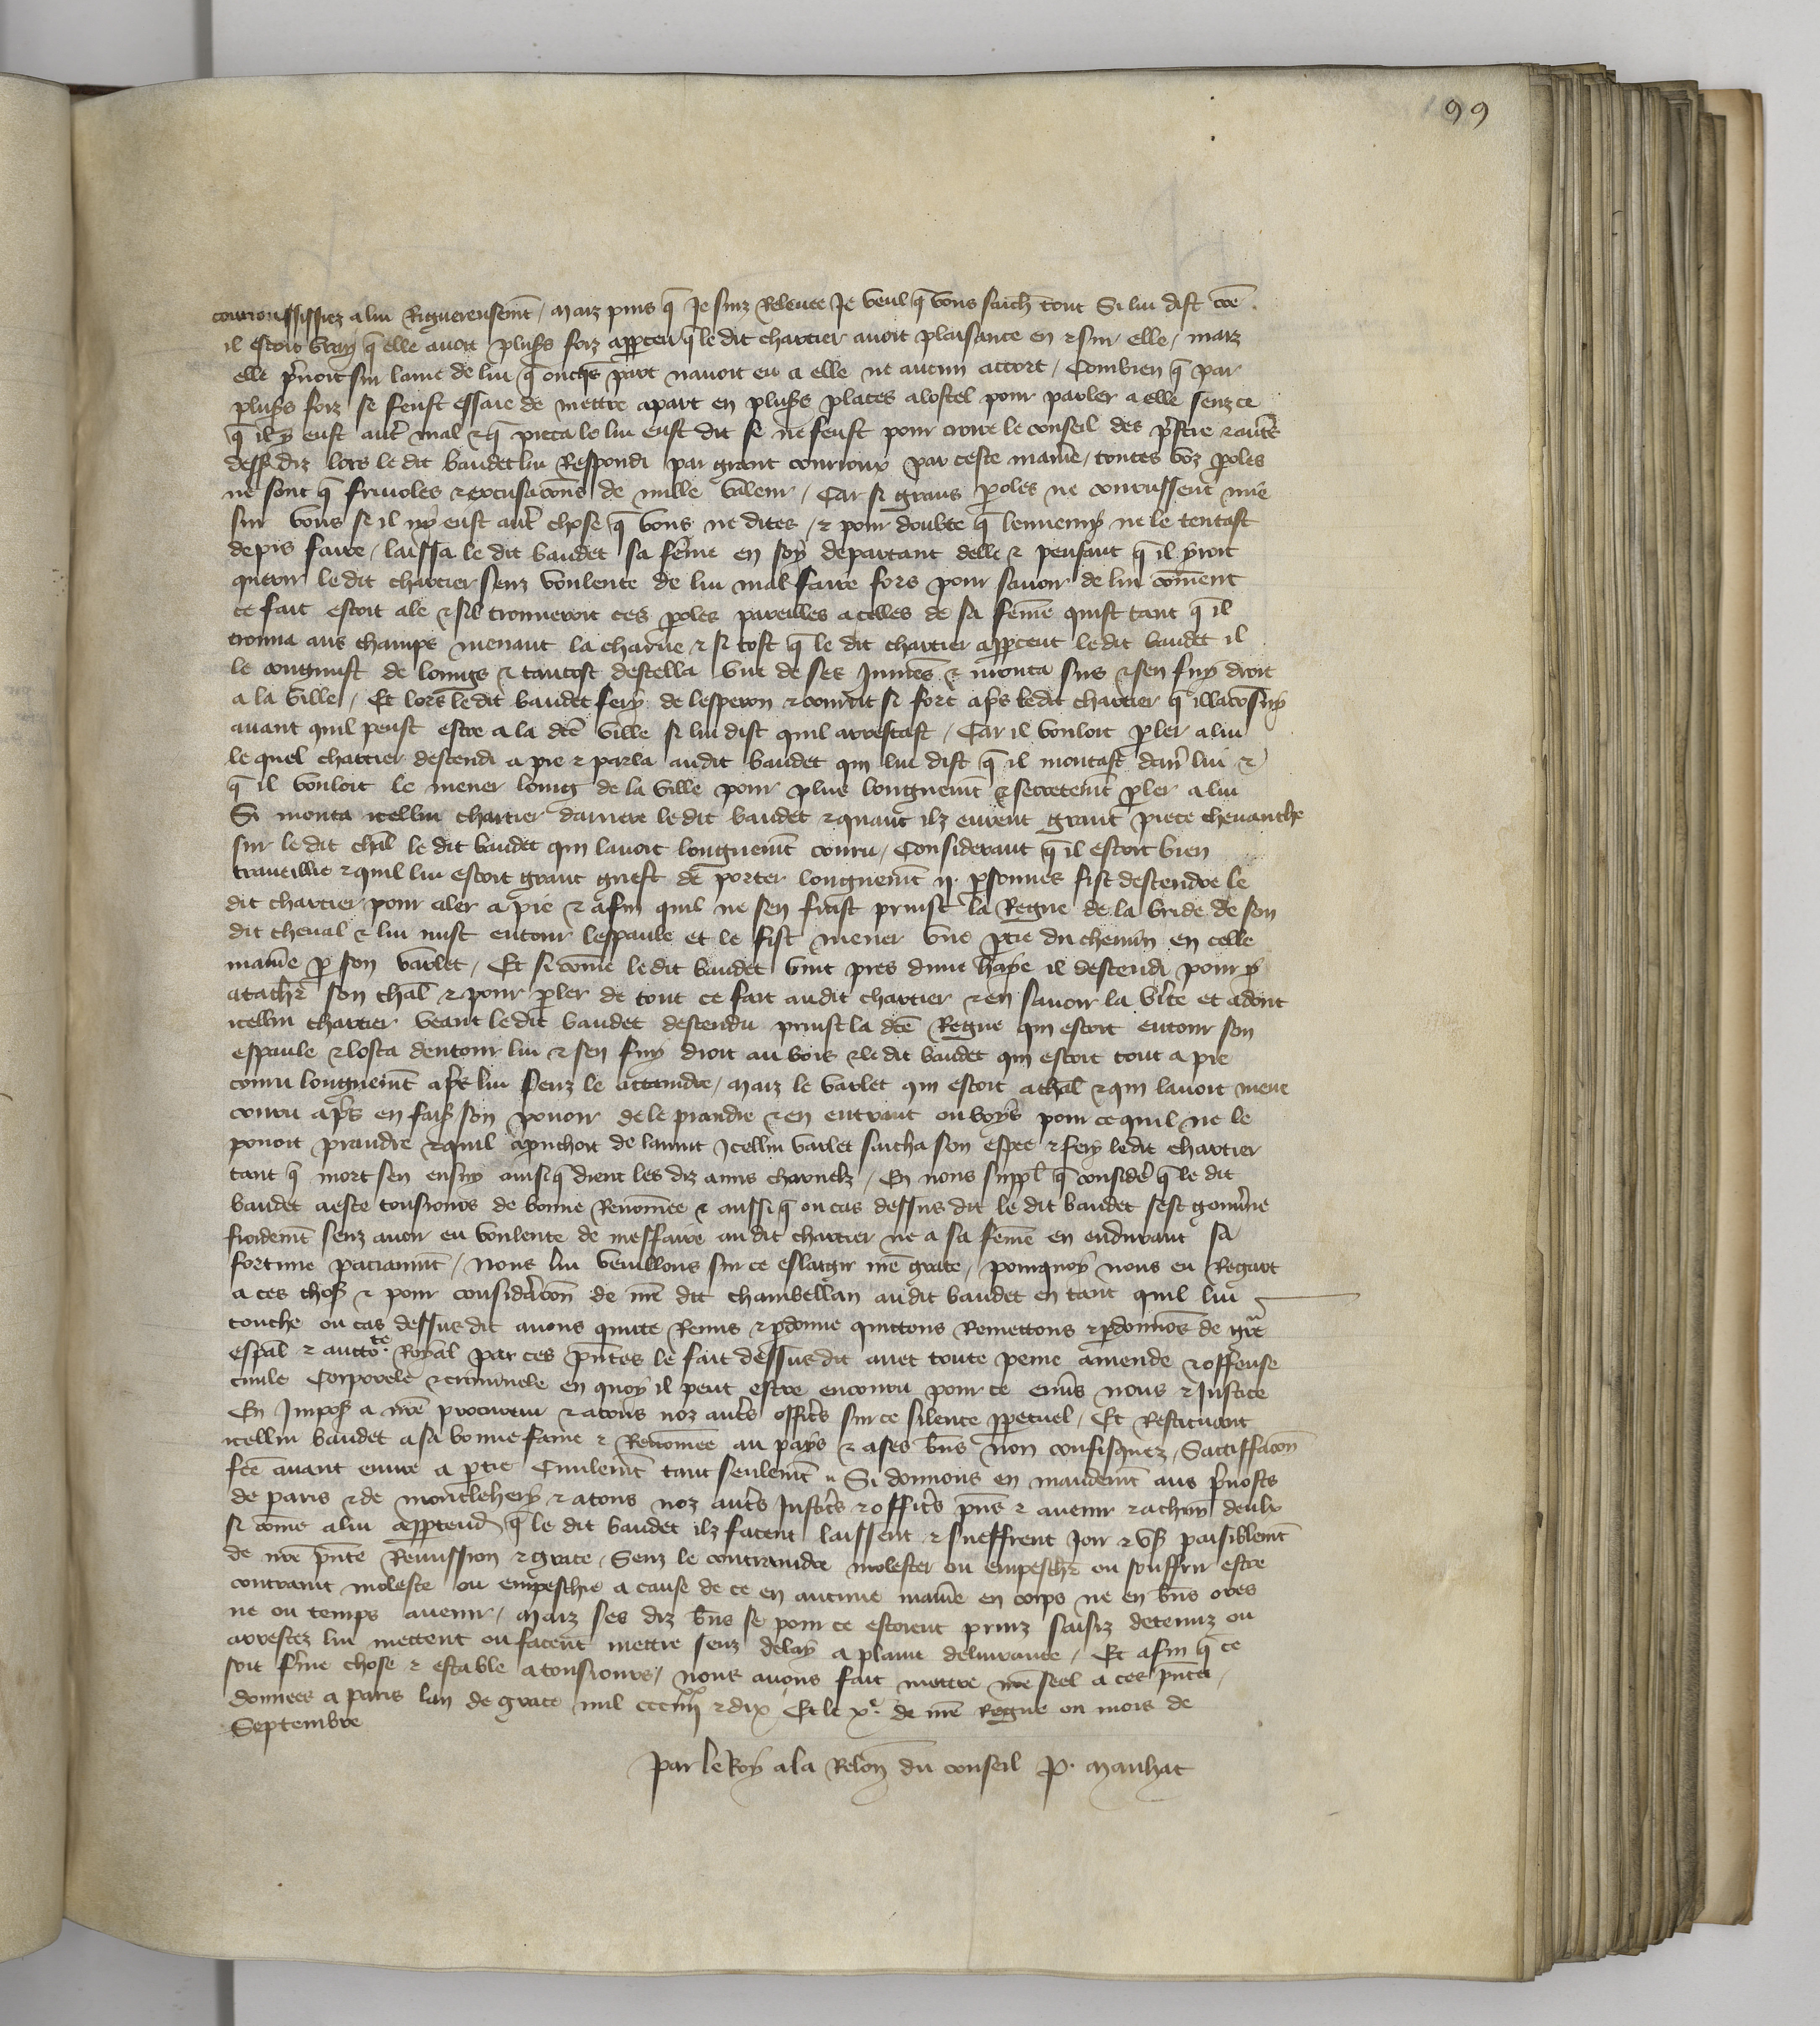 99
courroussissiez a lui Riguereusemt / maiz puis q Je suiz Relevee Je veul q vous saich tout Si lui dist
il estoit vray q elle avoit plus foiz apperceu q le dit chartier avoit plaisance en & sur elle / maiz
elle pnoit sur lame de lui q onches part navoit eu a elle ne aucun accort / Combien q par
plus foiz se feust essaie de mettre apart en plus places a lostel pour parler a elle senz ce
q il y eust autre mal & q pieca le lui eust dit se ne feust pour croire le conseil des
dess diz lors le dit baudet lui Respondi par grant courroux par ceste manie / toutes voz poles
ne sont q frivoles & excusacons de nulle valeur / Car si grans poles ne courussent mie
sur vous se il ny eust autre chose q vous ne dites / & pour doubte q lennemy ne le temtast
de pis faire / laissa le dit baudet sa feme en soy departant delle & pensant q il yroit
querir le dit chartier senz voulente de lui mal faire fors pour savoir de lui coment
ce fait estoit ale & sil trouveroit ces poles pareilles a celles de sa feme quist tant q il
trouva aus champs menant la charue & si tost q le dit chartier appceut le dit baudet il
le congnust de loings & tantost destella une de ses Jumes & monta sus & sen fuy droit
a la ville / Et lors le dit baudet fery de lesperon & courut si fort aps ledit chartier q illaconsuy
avant quil peust estre a la dce ville si lui dist quil arrestast / Car il vouloit pler a lui
le quel chartier descendi a pie & parla audit baudet qui lui dist q il montast dar lui &
q il vouloit le mener loing de la ville pour plus longuemt & secretemt pler a lui
Si monta icellui chartier darriere le dit baudet & quant ilz eurent grant piece chevauche
sur le dit chal le dit baudet qui lavoit longuemt couru / Considerant q il estoit bien
traveillie & quil lui estoit grant grief de porter longuemt ij. psonnes fist descendre le
dit chartier pour aler a pie & afin quil ne sen fuist prinst la Regne de la bride de son
dit cheval & lui mist entour lespaule et le fist mener une ptie du chemin en celle
manie p son varlet / Et si come le dit baudet vint pres dune haye il descendi pour y
atachr son chal & pour pler de tout ce fait au dit chartier & en savoir la vite et adont
icellui chartier veant le dit baudet descendu prinst la dce Regne qui estoit entour son
espaule & losta dentour lui & sen fuy droit au bois & le dit baudet qui estoit tout a pie
couru longuemt aps lui senz le attaindre / maiz le varlet qui estoit a chal & qui lavoit mene
couru aps en fais son pouoir de le prandre & en entrant ou boys pour ce quil ne le
pouoit prandre & quil apruchoit de lannuit Icellui varlet saicha son espee & fery ledit chartier
tant q mort sen ensuy ainsi q dient les diz amis charnelz / En nous suppl q conside q le dit
baudet a este tousiours de bonne Renomee & aussi q ou cas dessus dit le dit baudet sest gouvne
froidemt senz avoir eu voulente de meffaire au dit chartier ne a sa feme en endurant sa
fortune paciamnt / nous lui veuillons sur ce eslargir nre grace / pourquoy nous eu Regart
a ces choses & pour consideracon de nre dit chambellan au dit baudet en tant quil lui
touche ou cas dessus dit avons quitte Remis & pdonne quittons Remettons & pdonnons de gre
espal & auctote Royal par ces pntes le fait dessus dit avec toute peine amende & offense
civile Corporele & criminele en quoy il peut estre encouru pour ce envs nous & Justice
En Impos a nre procureur & a tous noz autres officrs sur ce silence ppetuel / Et Restituant
icellui baudet a sa bonne fame & Renomee au pays & a ses bns non confisquez / Sattiffacon
fce avant euvre a ptie Civilemt tant seulemt // Si donnons en mandemt aus pvosts
de paris & de montlehery & a tous noz autres Justicrs & officrs pns & avenir & a chun deulx
si come a lui apptend q le dit baudet ilz facent laissent & sueffrent Joir & us paisiblemt
de nre pnte Remission & grace / Senz le contraindre molester ou empeschr ou souffrir estre
contraint moleste ou empeschie a cause de ce en aucune manie en corps ne en bns ores
ne ou temps avenir / maiz ses diz bns se pour ce estoient prinz saisiz detenuz ou
arrestez lui mettent ou facent mettre senz delay a plaine delivrance / Et afin q ce
soit fme chose & estable a tousiours / nous avons fait mettre nre seel a ces pntes /
donnees a paris lan de grace mil ccciiiixx & dix Et le xe. de nre Regne ou mois de
Septembre
Par le Roy a la Relon du conseil P. Manhac